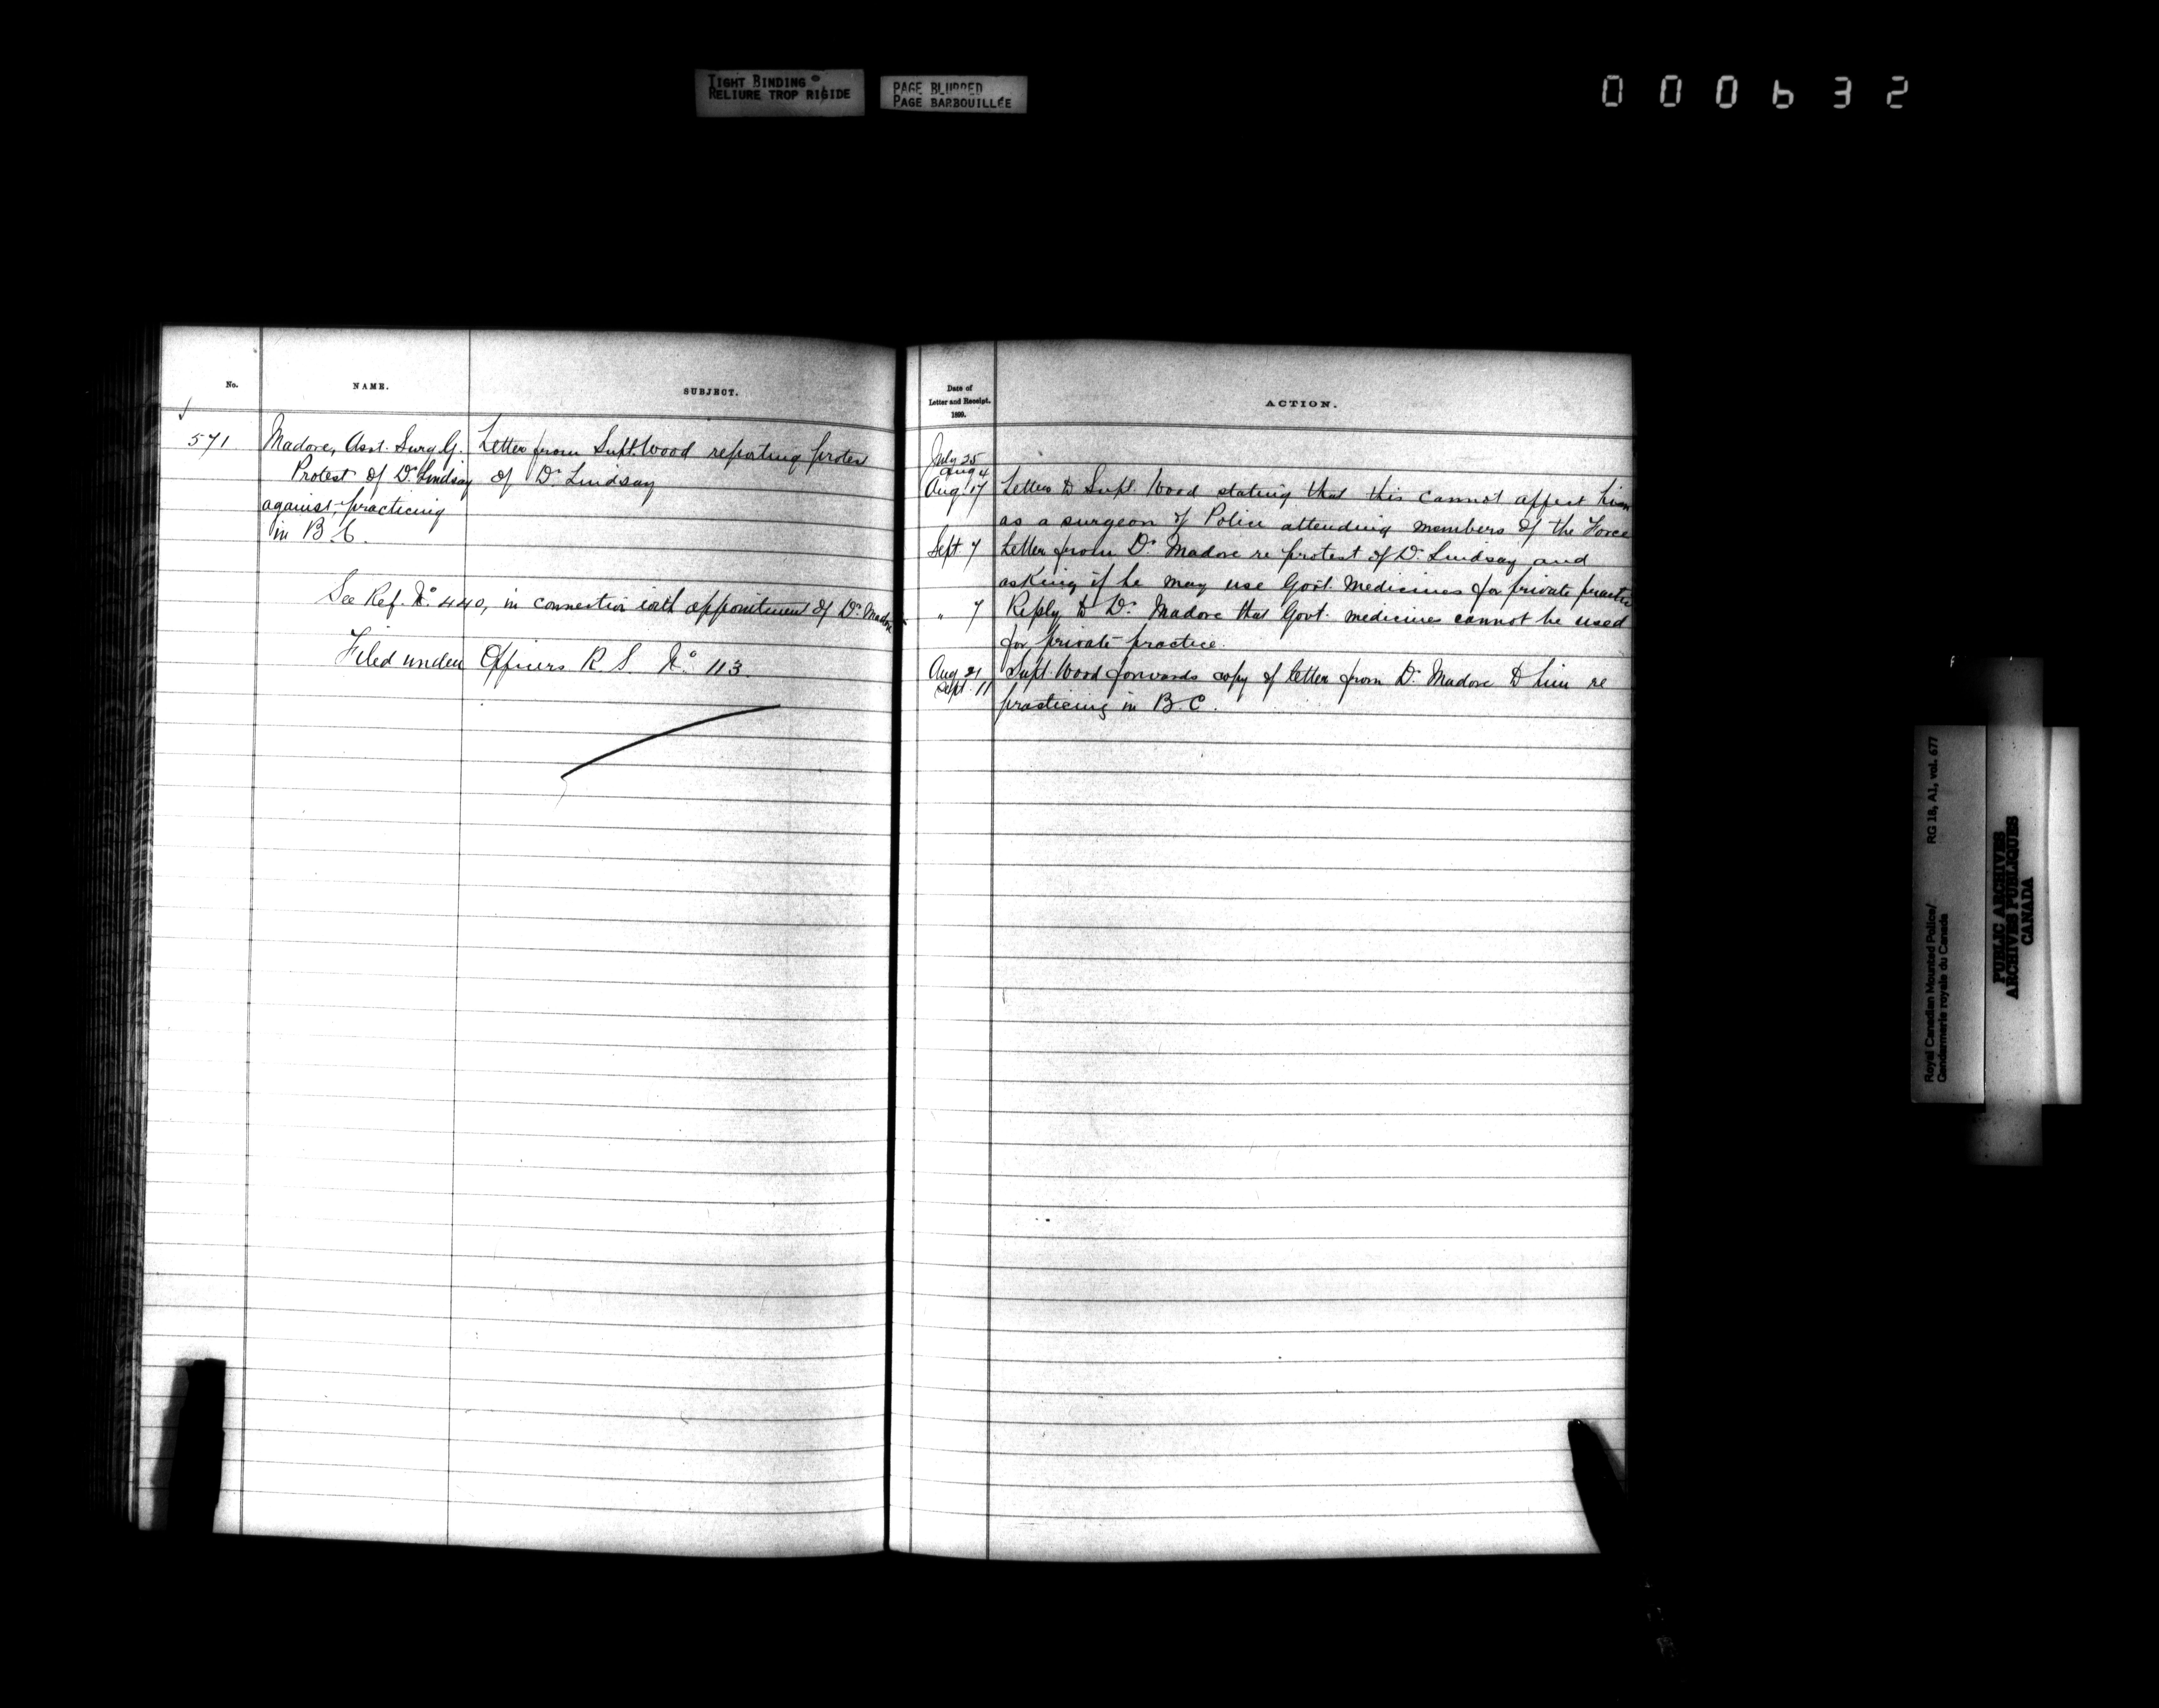 TIGHT BINDING
RELIURE TROP RIGIDE
PAGE BLURRED
PAGE BARBOUILLÉE
000632
No.
NAME.
SUBJECT.
571
Madore, Asst. Surg. G.
Protest of Dr. Lindsay
against practicing
in B.C.
Letter from Supt. Wood reporting protest
of Dr. Lindsay
See Ref. No. 440, in connection with appointment of Dr. Madore
Filed under Officers R S No 113.
Date of
Letter and Receipt.
1899.
ACTION.
July 25
Aug 4
Aug. 17 Letter to Supt. Wood stating that this cannot affect him
as a surgeon of Police attending members of the Force
Sept. 7 Letter from Dr. Madore re protest of Dr. Lindsay and
asking if he may use Govt. Medicines for private practice
" 7 Reply to Dr. Madore that Govt. medicines cannot be used
for private practice.
Aug 21 Supt. Wood forwards copy of letter from Dr. Madore to him re
Sept. 11 practicing in B.C.
Royal Canadian Mounted Police/
Gendarmerie royale du Canada
RG 18, A1, vol. 677
PUBLIC ARCHIVES
ARCHIVES PUBLIQUES
CANADA